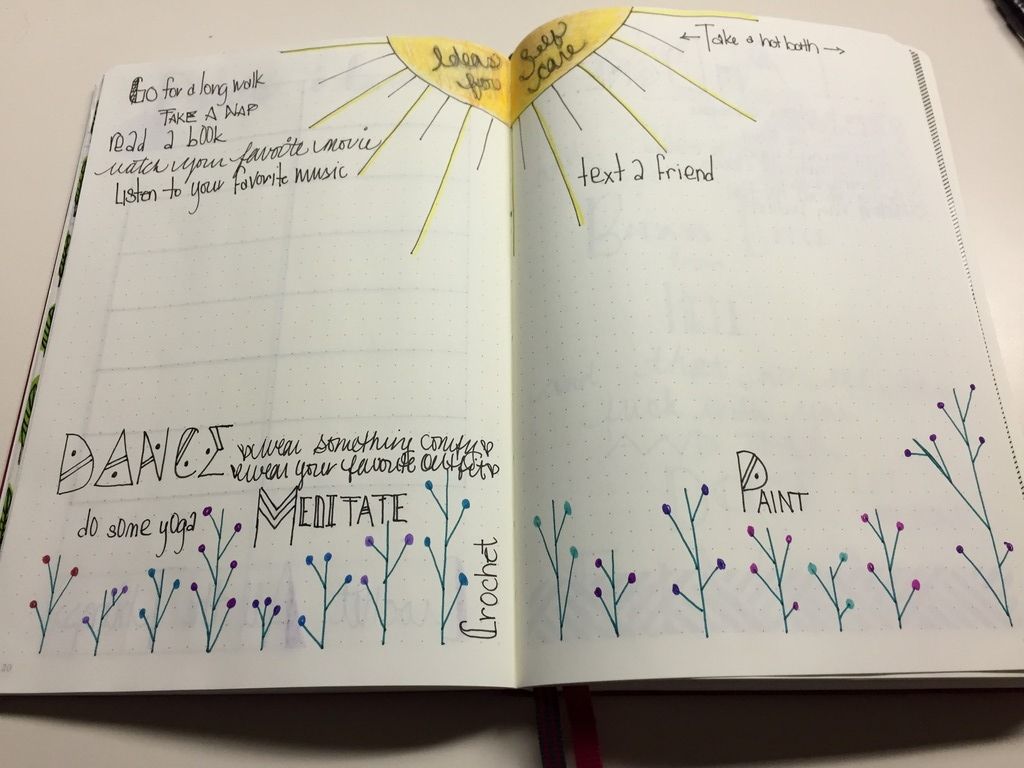 Ideas
for
Self
care
Go for a long walk
TAKE A NAP
read a book
watch your favorite movie
Listen to your favorite music
DANCE
wear something comfy
wear your favorite outfit
MEDITATE
do some yoga
Crochet
20
←Take a hot bath→
text a friend
PAINT